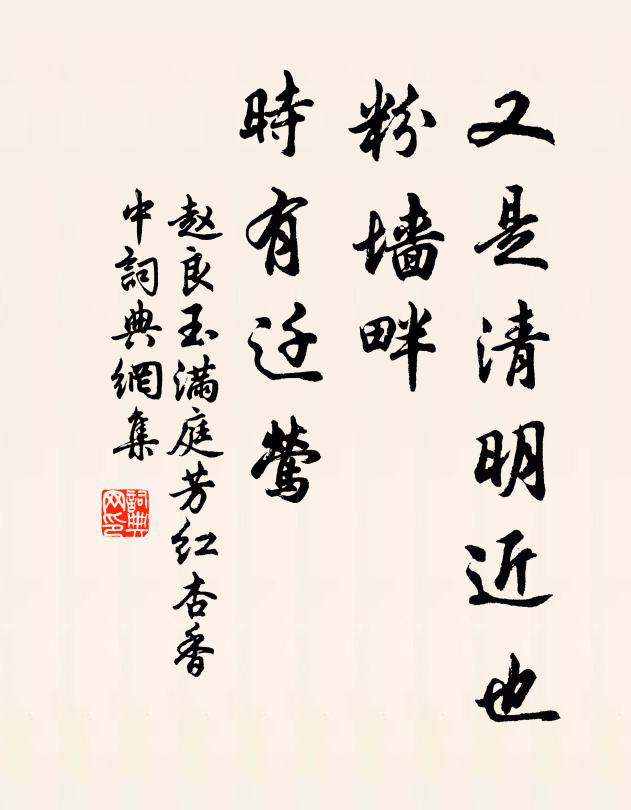 又是清明近也
粉墙畔
時有迁鶯
赵良玉满庭芳红杏香
中詞典網集
詞典
网印